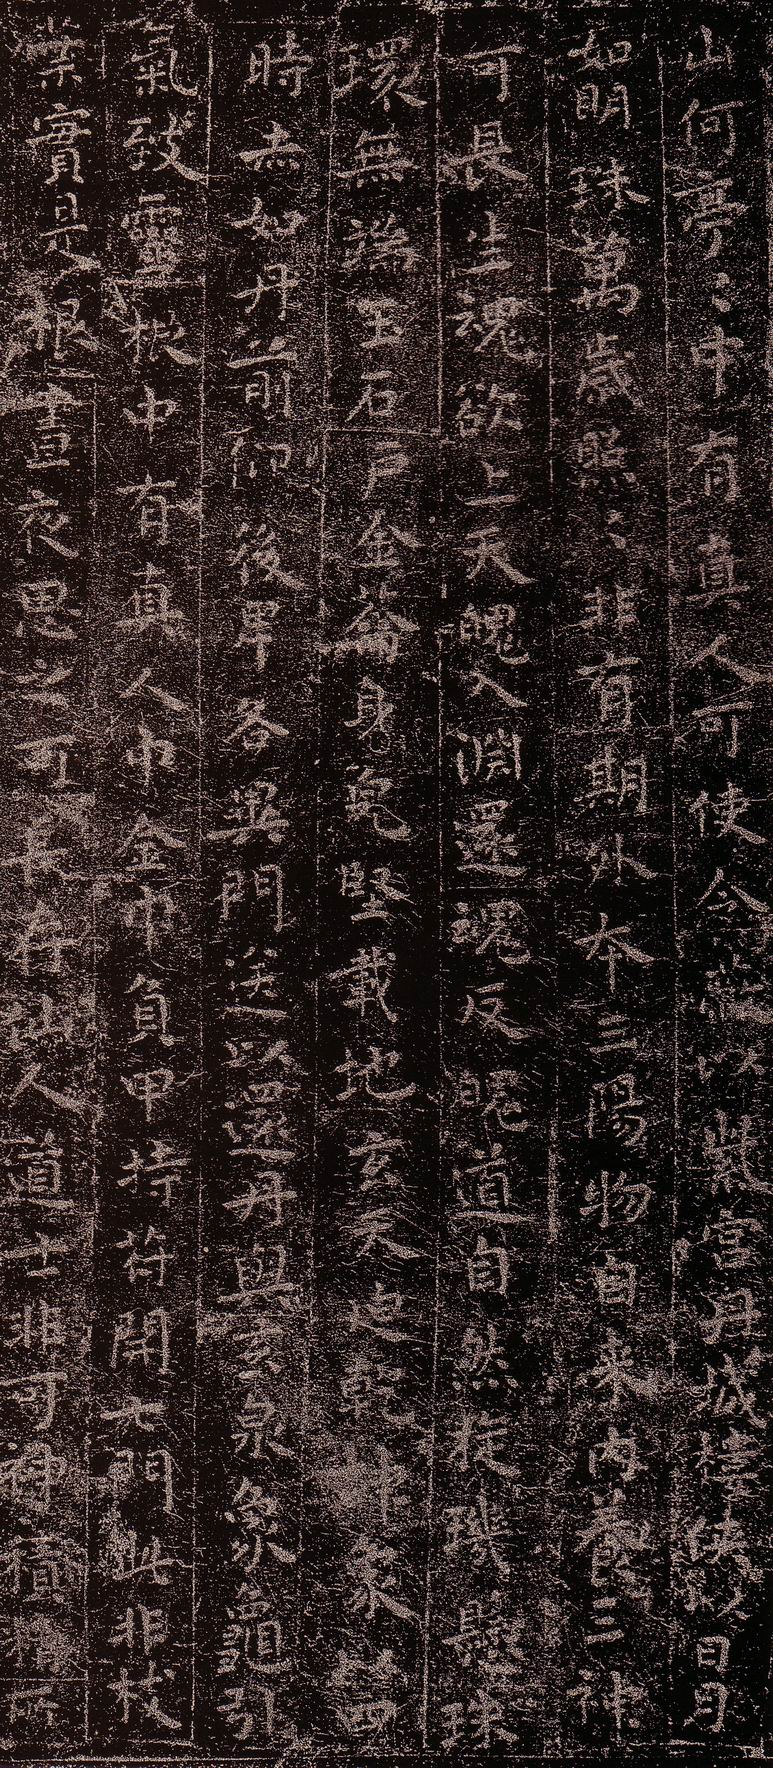 山何亭〻中有真人可使令蔽以紫宮丹城樓俠以日月
如明珠萬歲照〻非有期外本三陽物自来內養三神
可長生魂欲上天魄入淵還魂反魄道自然㨀璣懸珠
環無端玉石戶金籥身皃堅載地玄天迫乾坤象以四
時赤如丹前仰後卑各異門送以還丹與玄泉象龜引
氣致靈根中有真人巾金巾負甲持符開七門此非枝
葉實是根晝夜思之可長存仙人道士非可神積精所